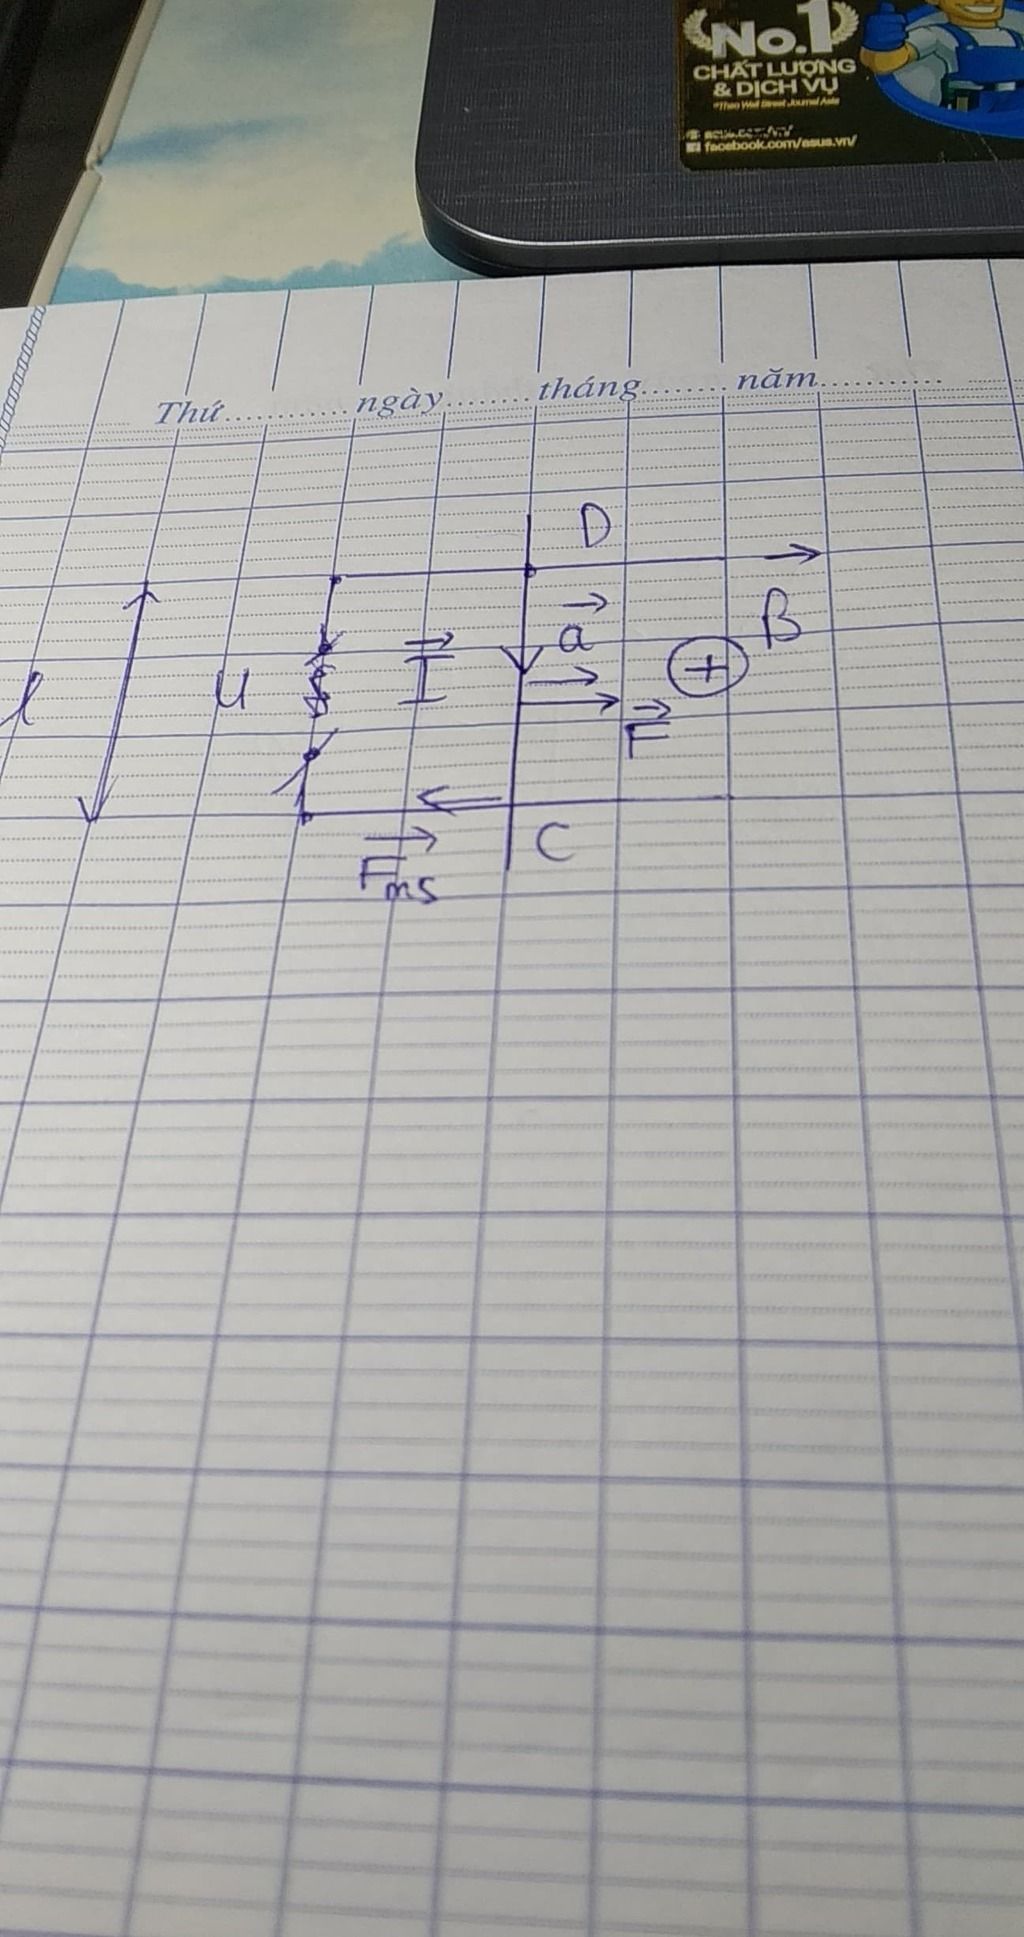 No.1
CHẤT LƯỢNG
& DỊCH VỤ
*Theo Wall Street Journal Asia
facebook.com/asus.vn/
Thứ............ngày........tháng........năm...........
D
a
B
l
U
I
+
F
C
Fms